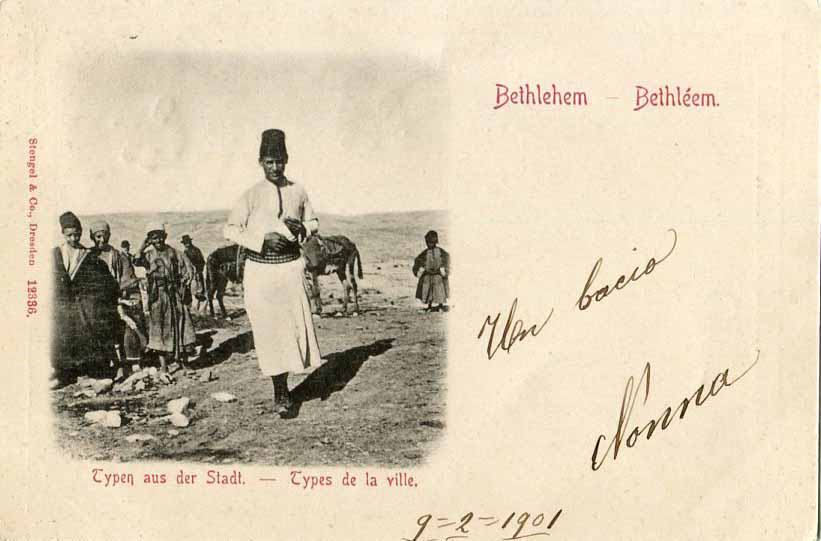 Bethlehem — Bethléem.
Stengel & Co., Dresden 12336.
Un bacio
Nonna
Typen aus der Stadt. — Types de la ville.
9=2=1901